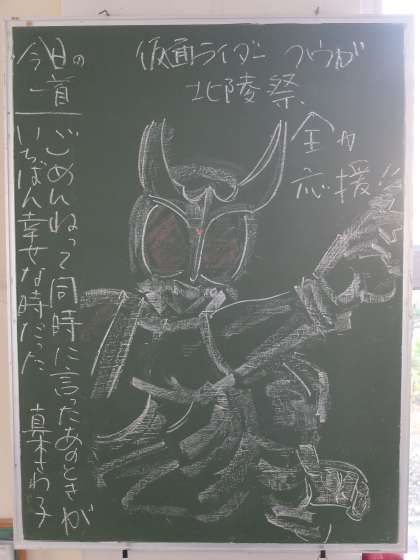 今日の
一首
ごめんねって同時に言ったあのときが
いちばん幸せな時だった 真木さわ子
仮面ライダー クウガ
北陵祭、
全力
応援!!